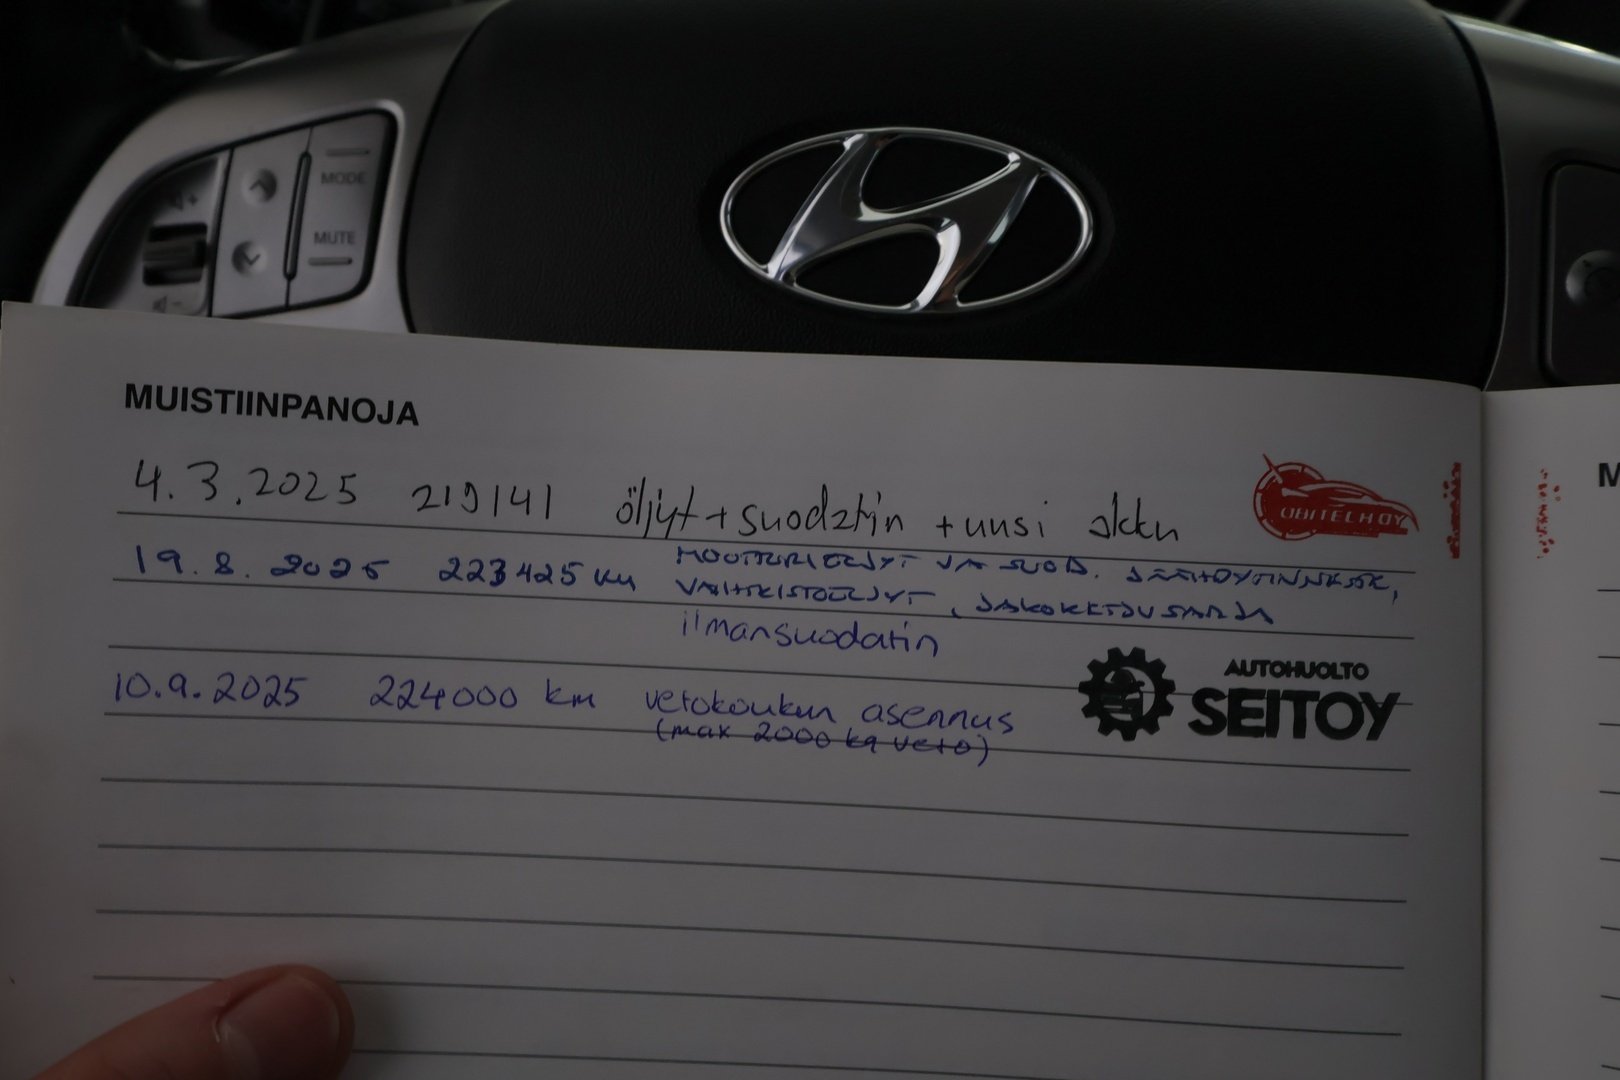 MODE
MUTE
MUISTIINPANOJA
4.3.2025 219141 öljyt + suodatin + uusi akku
UBITECH OY
19.8.2025 223425 km MOOTTORIÖLJYT JA SUOD. JÄÄHDYTINNESTE,
VAIHTEISTOÖLJYT, JAKOKETJUSARJA
ilmansuodatin
10.9.2025 224000 km vetokoukun asennus
(max 2000 kg veto)
AUTOHUOLTO
SEITOY
M